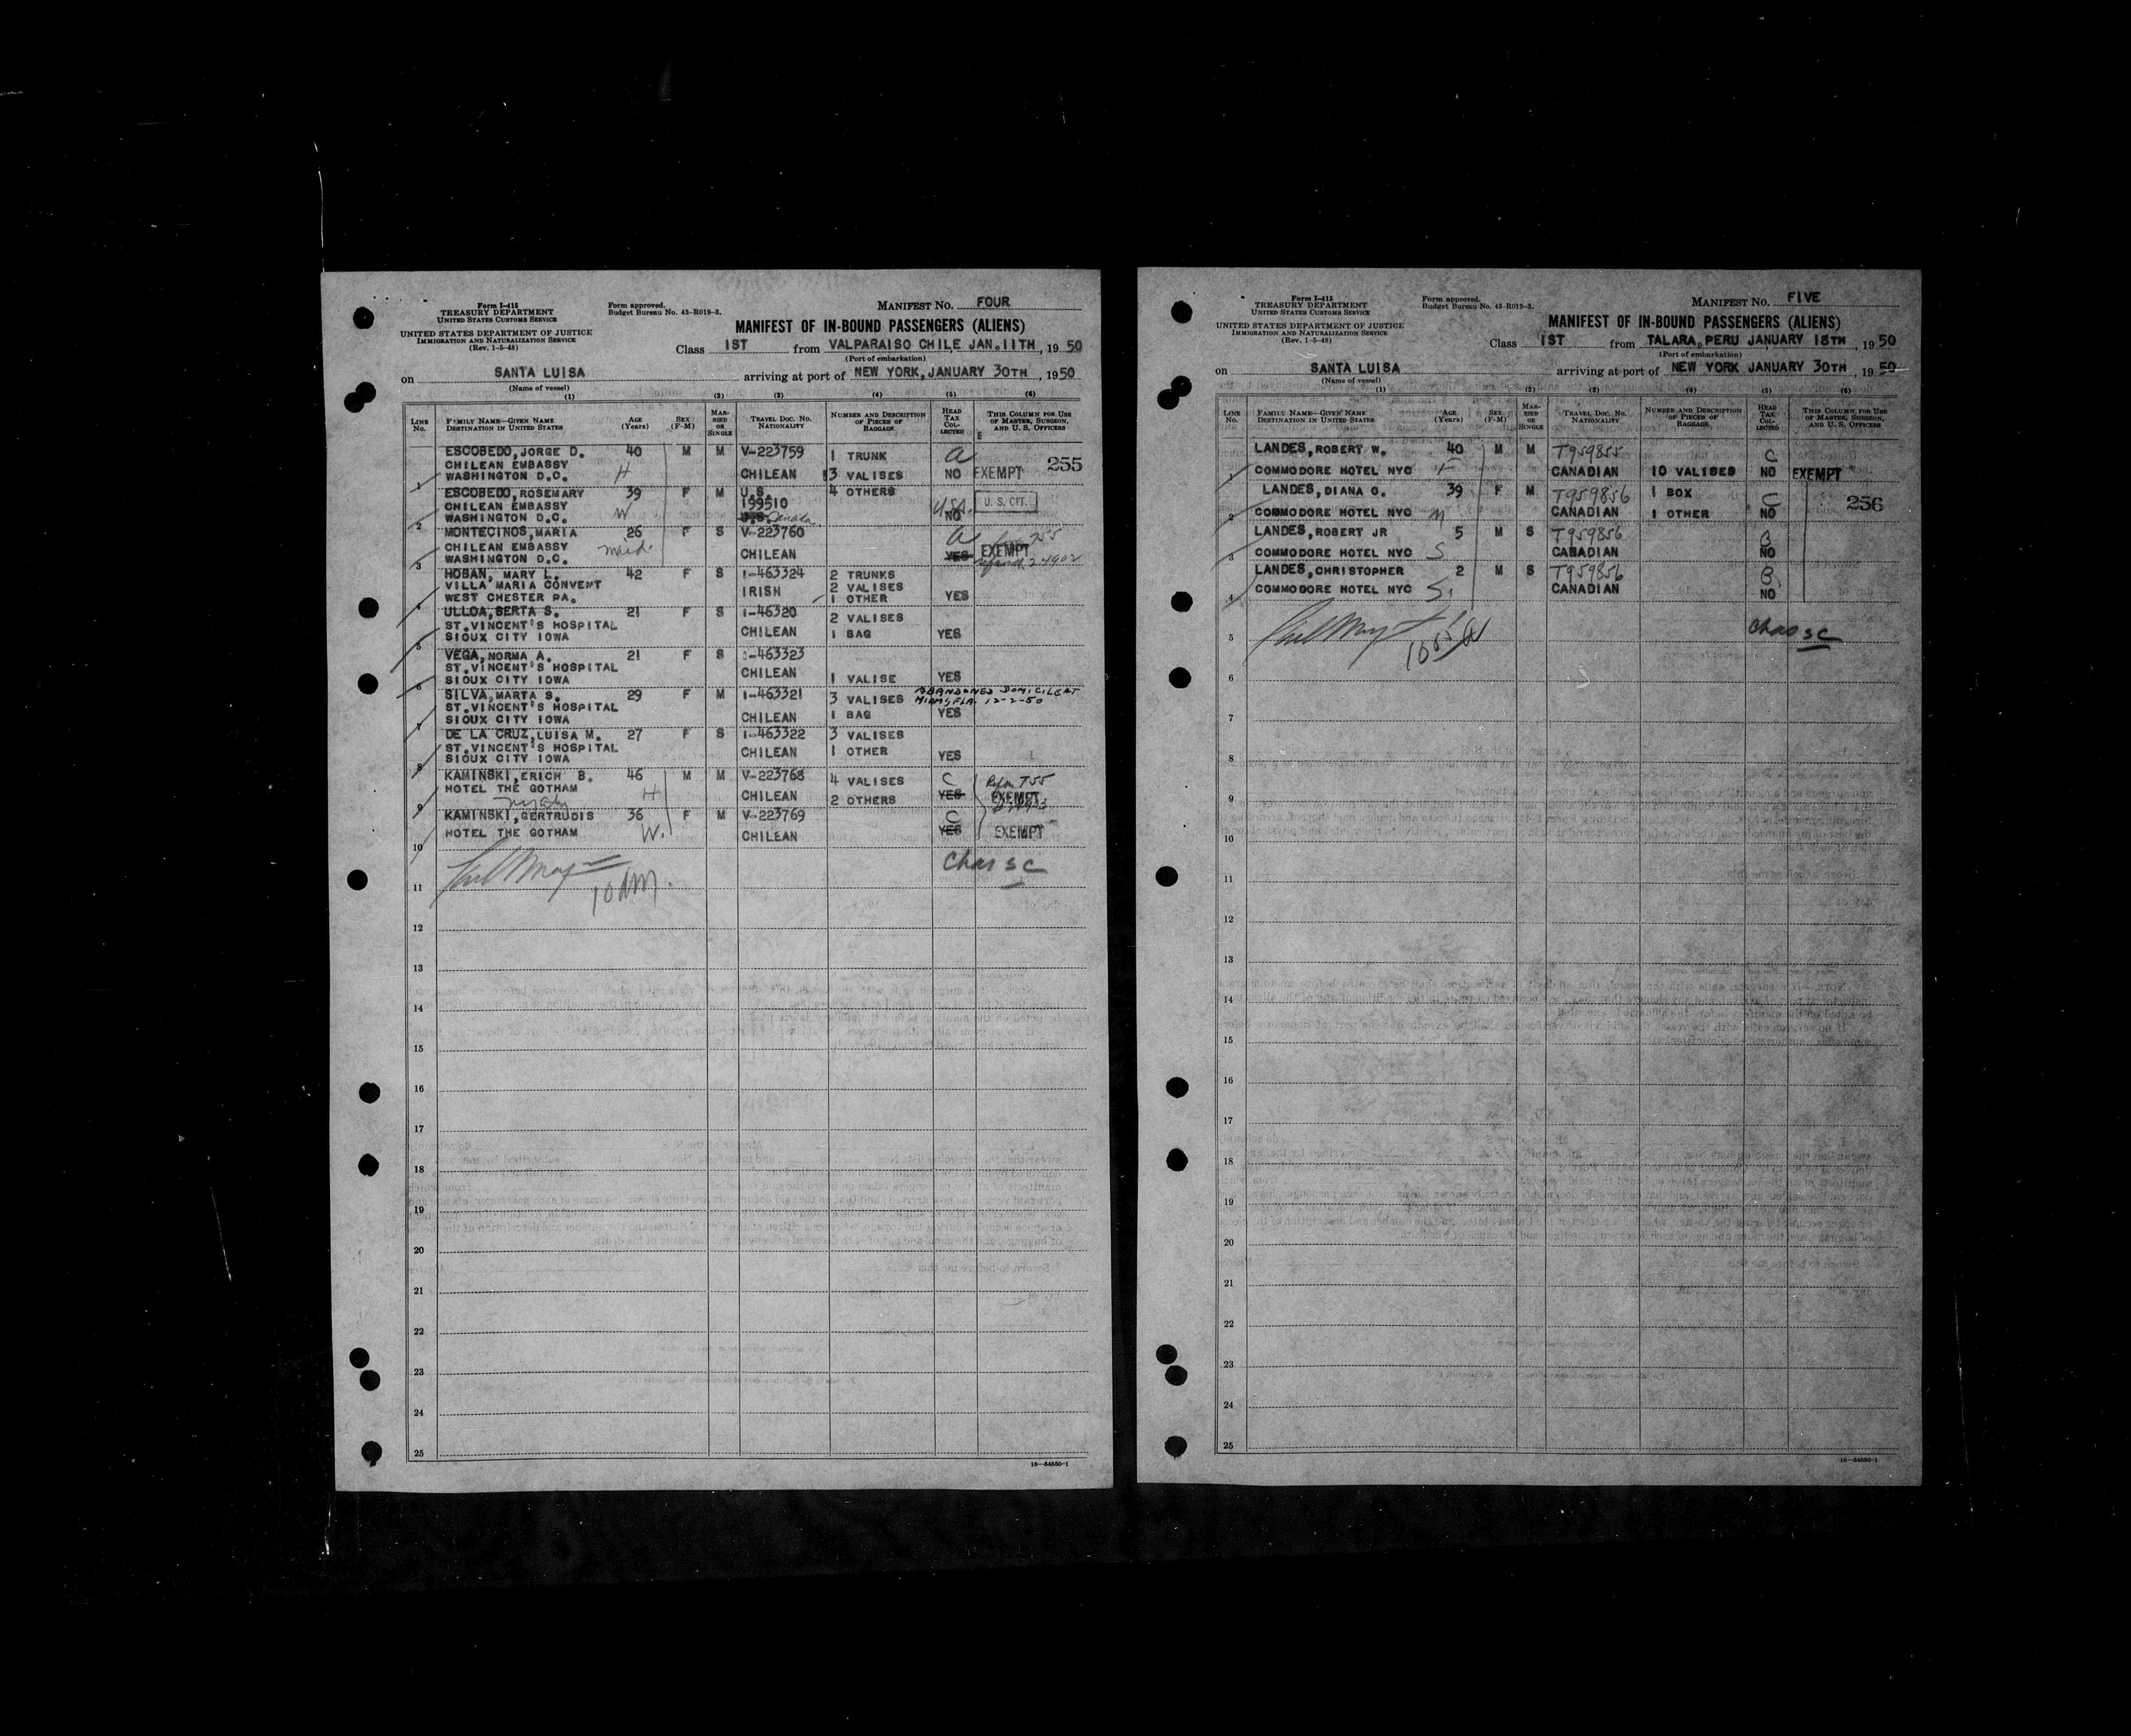 Form I-415
TREASURY DEPARTMENT
UNITED STATES CUSTOMS SERVICE
UNITED STATES DEPARTMENT OF JUSTICE
IMMIGRATION AND NATURALIZATION SERVICE
(Rev. 1-5-48)
Form approved.
Budget Bureau No. 43-R019-3.
MANIFEST NO. FOUR
MANIFEST OF IN-BOUND PASSENGERS (ALIENS)
Class 1ST from VALPARAISO CHILE JAN. 11TH, 1950
(Port of embarkation)
on SANTA LUISA arriving at port of NEW YORK, JANUARY 30TH, 1950
(Name of vessel)
(1) (2) (3) (4) (5) (6)
LINE No. FAMILY NAME—GIVEN NAME DESTINATION IN UNITED STATES AGE (Years) SEX (F-M) MARRIED OR SINGLE TRAVEL DOC. NO. NATIONALITY NUMBER AND DESCRIPTION OF PIECES OF BAGGAGE HEAD TAX COLLECTED THIS COLUMN FOR USE OF MASTER, SURGEON, AND U. S. OFFICERS
ESCOBEDO, JORGE D. 40 M M V-223759 1 TRUNK a
CHILEAN EMBASSY 255
1 WASHINGTON D.C. H CHILEAN 3 VALISES NO EXEMPT
ESCOBEDO, ROSEMARY 39 F M U.S. 4 OTHERS
CHILEAN EMBASSY 199510 USA. U. S. CIT.
2 WASHINGTON D.C. W U.S. Canada NO
MONTECINOS, MARIA 26 F S V-223760 a
CHILEAN EMBASSY maid. CHILEAN YES EXEMPT
3 WASHINGTON D.C.
HOBAN, MARY L. 42 F S I-463324 2 TRUNKS
VILLA MARIA CONVENT IRISH 2 VALISES
4 WEST CHESTER PA. 1 OTHER YES
ULLOA, BERTA S. 21 F S I-46320 2 VALISES
ST. VINCENT'S HOSPITAL
5 SIOUX CITY IOWA CHILEAN 1 BAG YES
VEGA, NORMA A. 21 F S I-463323
ST. VINCENT'S HOSPITAL
6 SIOUX CITY IOWA CHILEAN 1 VALISE YES
SILVA, MARTA S. 29 F M I-463321 3 VALISES ABANDONED DOMICILE AT
ST. VINCENT'S HOSPITAL MIAMI, FLA. 12-2-50
7 SIOUX CITY IOWA CHILEAN 1 BAG YES
DE LA CRUZ, LUISA M. 27 F S I-463322 3 VALISES
ST. VINCENT'S HOSPITAL
8 SIOUX CITY IOWA CHILEAN 1 OTHER YES
KAMINSKI, ERICH B. 46 M M V-223768 4 VALISES C
HOTEL THE GOTHAM H CHILEAN 2 OTHERS YES EXEMPT
9
KAMINSKI, GERTRUDIS 36 F M V-223769 C
HOTEL THE GOTHAM W. CHILEAN YES EXEMPT
10
Chas SC
11 10 AM.
12
13
14
15
16
17
18
19
20
21
22
23
24
25
16—54650-1
Form I-415
TREASURY DEPARTMENT
UNITED STATES CUSTOMS SERVICE
UNITED STATES DEPARTMENT OF JUSTICE
IMMIGRATION AND NATURALIZATION SERVICE
(Rev. 1-5-48)
Form approved.
Budget Bureau No. 43-R019-3.
MANIFEST NO. FIVE
MANIFEST OF IN-BOUND PASSENGERS (ALIENS)
Class 1ST from TALARA, PERU JANUARY 18TH, 1950
(Port of embarkation)
on SANTA LUISA arriving at port of NEW YORK JANUARY 30TH, 1950
(Name of vessel)
(1) (2) (3) (4) (5) (6)
LINE No. FAMILY NAME—GIVEN NAME DESTINATION IN UNITED STATES AGE (Years) SEX (F-M) MARRIED OR SINGLE TRAVEL DOC. NO. NATIONALITY NUMBER AND DESCRIPTION OF PIECES OF BAGGAGE HEAD TAX COLLECTED THIS COLUMN FOR USE OF MASTER, SURGEON, AND U. S. OFFICERS
LANDES, ROBERT W. 40 M M T959855 C
1 COMMODORE HOTEL NYC F CANADIAN 10 VALISES NO EXEMPT
LANDES, DIANA O. 39 F M T959856 1 BOX C 256
2 COMMODORE HOTEL NYC M CANADIAN 1 OTHER NO
LANDES, ROBERT JR 5 M S T959856 B
3 COMMODORE HOTEL NYC S CANADIAN NO
LANDES, CHRISTOPHER 2 M S T959856 B
4 COMMODORE HOTEL NYC S CANADIAN NO
5 Chas SC
6
7
8
9
10
11
12
13
14
15
16
17
18
19
20
21
22
23
24
25
16—54650-1